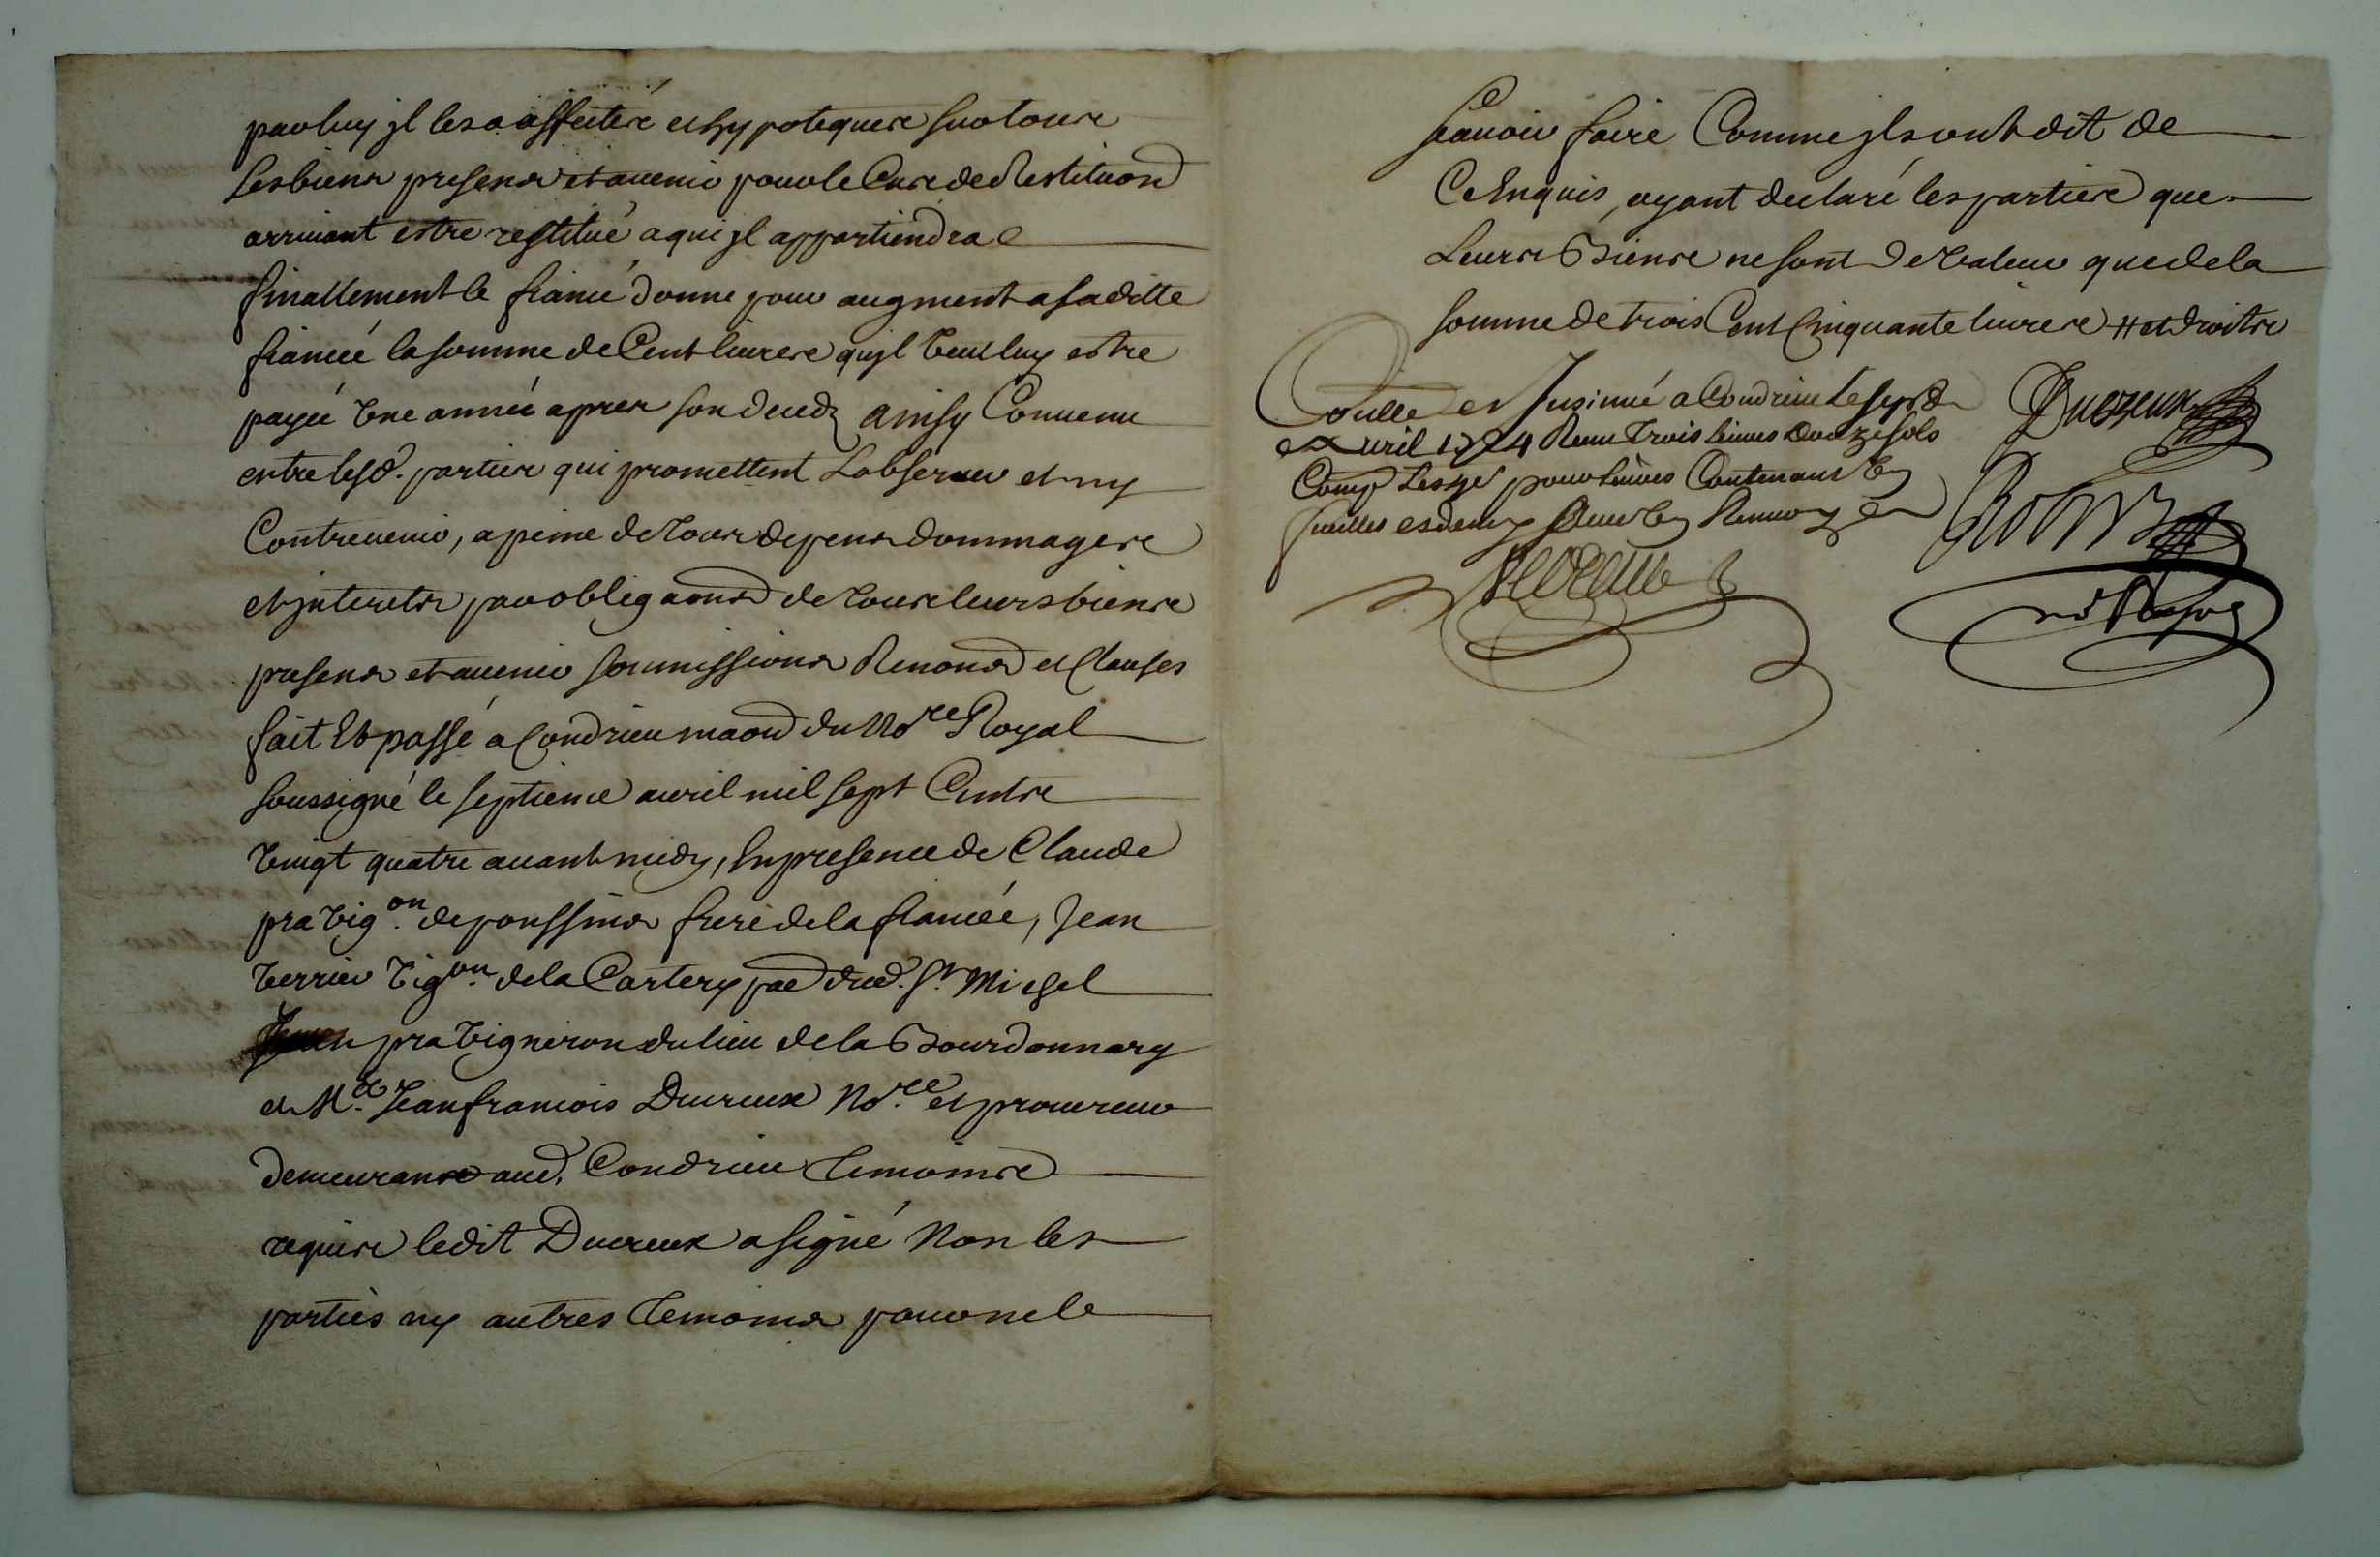 par luy jl les a affectés et hypotequés sur tous
ses biens presens et avenir pour le Cas de Restituon
arrivant estre restitué a qui jl appartiendra
finallement le fiancé donne pour augment a sa ditte
fiancée la somme de Cent livres qujl veut luy estre
payée Une année apres son deceds ainsy Convenu
entre lesd. parties qui promettent Lobserver et ny
Contrevenir, a peine de tous depens dommages
et jnterets par obligaons de tous leurs biens
presens et avenir soumissions Renons et Clauses
fait Et passé a Condrieu maon du Nore Royal
soussigné le septieme avril mil sept Cents
vingt quatre avant midy, En presence de Claude
pra vigon. de poussins frere de la fiancée, Jean
verrier vigon. de la Cartery pae dud. St. Michel
pra vigneron du lieu de la Bourdonnary
et Me. Jean francois Ducreux Nore. et procureur
demeurans aud. Condrieu temoins
requis ledit Ducreux a signé Non les
parties ny autres temoins pour ne le
scavoir faire Comme jls ont dit de
Ce Enquis, ayant declaré les parties que
Leurs Biens ne sont de valeur que de la
somme de trois Cent Cinquante livres et droits
Controllé et Insinué a Condrieu Le sept
avril 1724 Receu trois livres douze sols
pour livres Contenant Un
feuillet et demy avec Un Renvoy
Ducreux